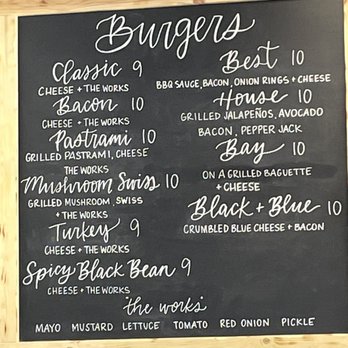 Burgers
Classic 9
CHEESE + THE WORKS
Bacon 10
CHEESE + THE WORKS
Pastrami 10
GRILLED PASTRAMI, CHEESE
THE WORKS
Mushroom Swiss 10
GRILLED MUSHROOM, SWISS
+ THE WORKS
Turkey 9
CHEESE + THE WORKS
Spicy Black Bean 9
CHEESE + THE WORKS
Best 10
BBQ SAUCE, BACON, ONION RINGS + CHEESE
House 10
GRILLED JALAPEÑOS, AVOCADO
BACON, PEPPER JACK
Bay 10
ON A GRILLED BAGUETTE
+ CHEESE
Black + Blue 10
CRUMBLED BLUE CHEESE + BACON
'the works'
MAYO MUSTARD LETTUCE TOMATO RED ONION PICKLE